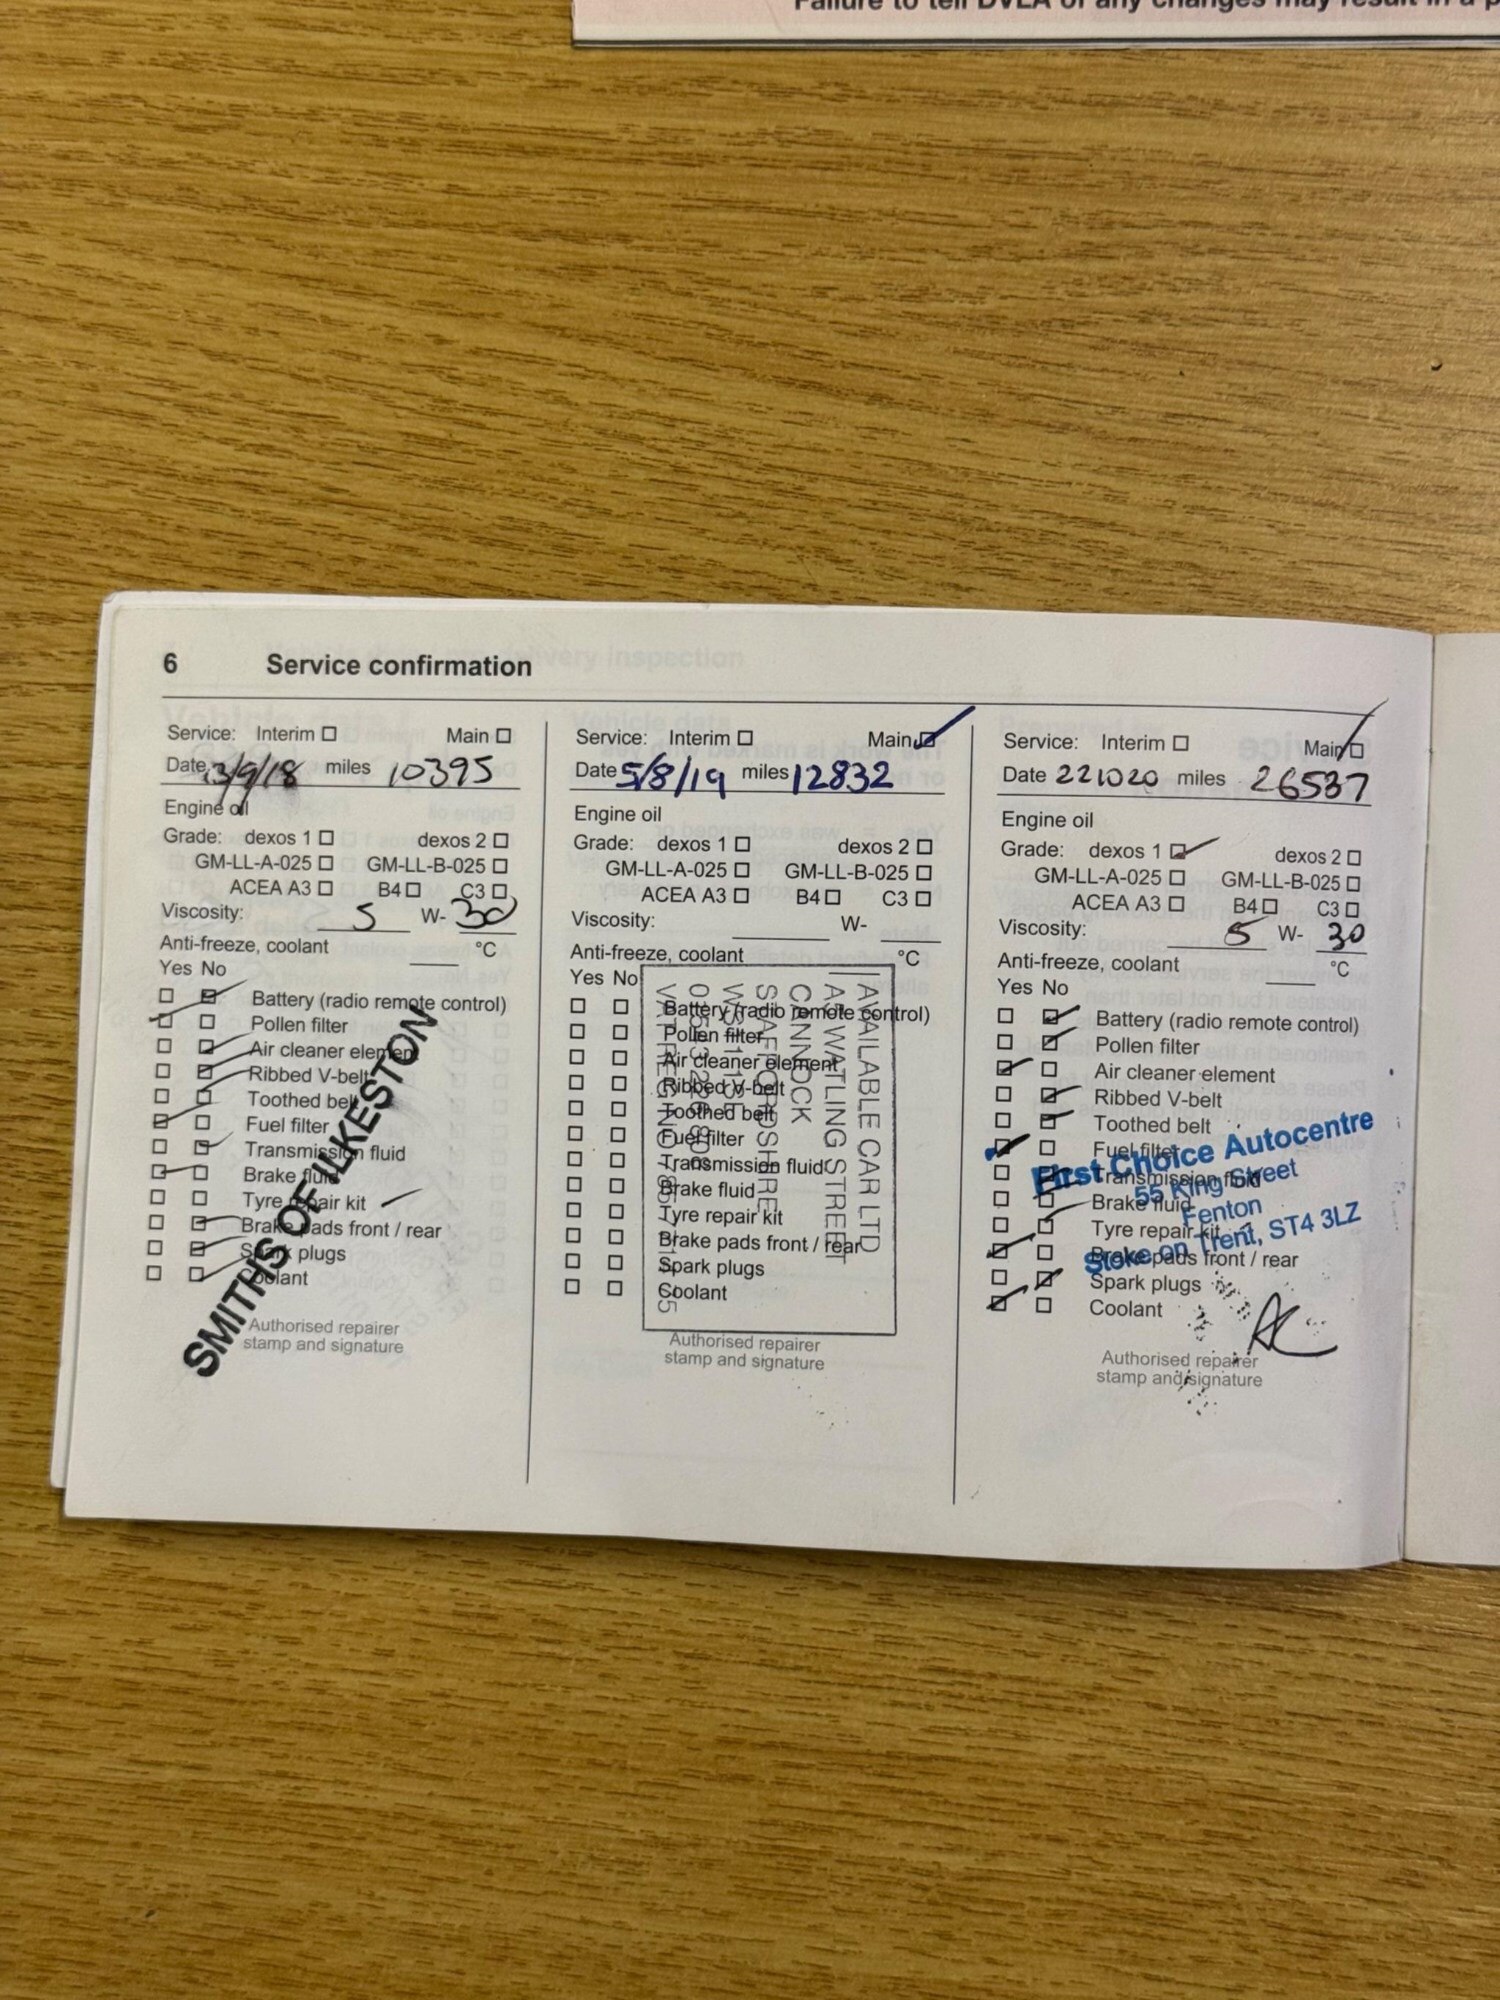 Failure to tell DVLA of any changes may result in a p
6 Service confirmation
Service: Interim Main
Date 13/9/18 miles 10395
Engine oil
Grade: dexos 1 dexos 2
GM-LL-A-025 GM-LL-B-025
ACEA A3 B4 C3
Viscosity: 5 W- 30
Anti-freeze, coolant °C
Yes No
Battery (radio remote control)
Pollen filter
Air cleaner element
Ribbed V-belt
Toothed belt
Fuel filter
Transmission fluid
Brake fluid
Tyre repair kit
Brake pads front / rear
Spark plugs
Coolant
SMITHS OF ILKESTON
Authorised repairer
stamp and signature
Service: Interim Main
Date 5/8/19 miles 12832
Engine oil
Grade: dexos 1 dexos 2
GM-LL-A-025 GM-LL-B-025
ACEA A3 B4 C3
Viscosity: W-
Anti-freeze, coolant °C
Yes No
Battery (radio remote control)
Pollen filter
Air cleaner element
Ribbed V-belt
Toothed belt
Fuel filter
Transmission fluid
Brake fluid
Tyre repair kit
Brake pads front / rear
Spark plugs
Coolant
AVAILABLE CAR LTD
A5 WATLING STREET
CANNOCK
STAFFORDSHIRE
Authorised repairer
stamp and signature
Service: Interim Main
Date 221020 miles 26537
Engine oil
Grade: dexos 1 dexos 2
GM-LL-A-025 GM-LL-B-025
ACEA A3 B4 C3
Viscosity: 5 W- 30
Anti-freeze, coolant °C
Yes No
Battery (radio remote control)
Pollen filter
Air cleaner element
Ribbed V-belt
Toothed belt
Fuel filter
Transmission fluid
Brake fluid
Tyre repair kit
Brake pads front / rear
Spark plugs
Coolant
First Choice Autocentre
55 King Street
Fenton
Stoke on Trent, ST4 3LZ
Authorised repairer
stamp and signature